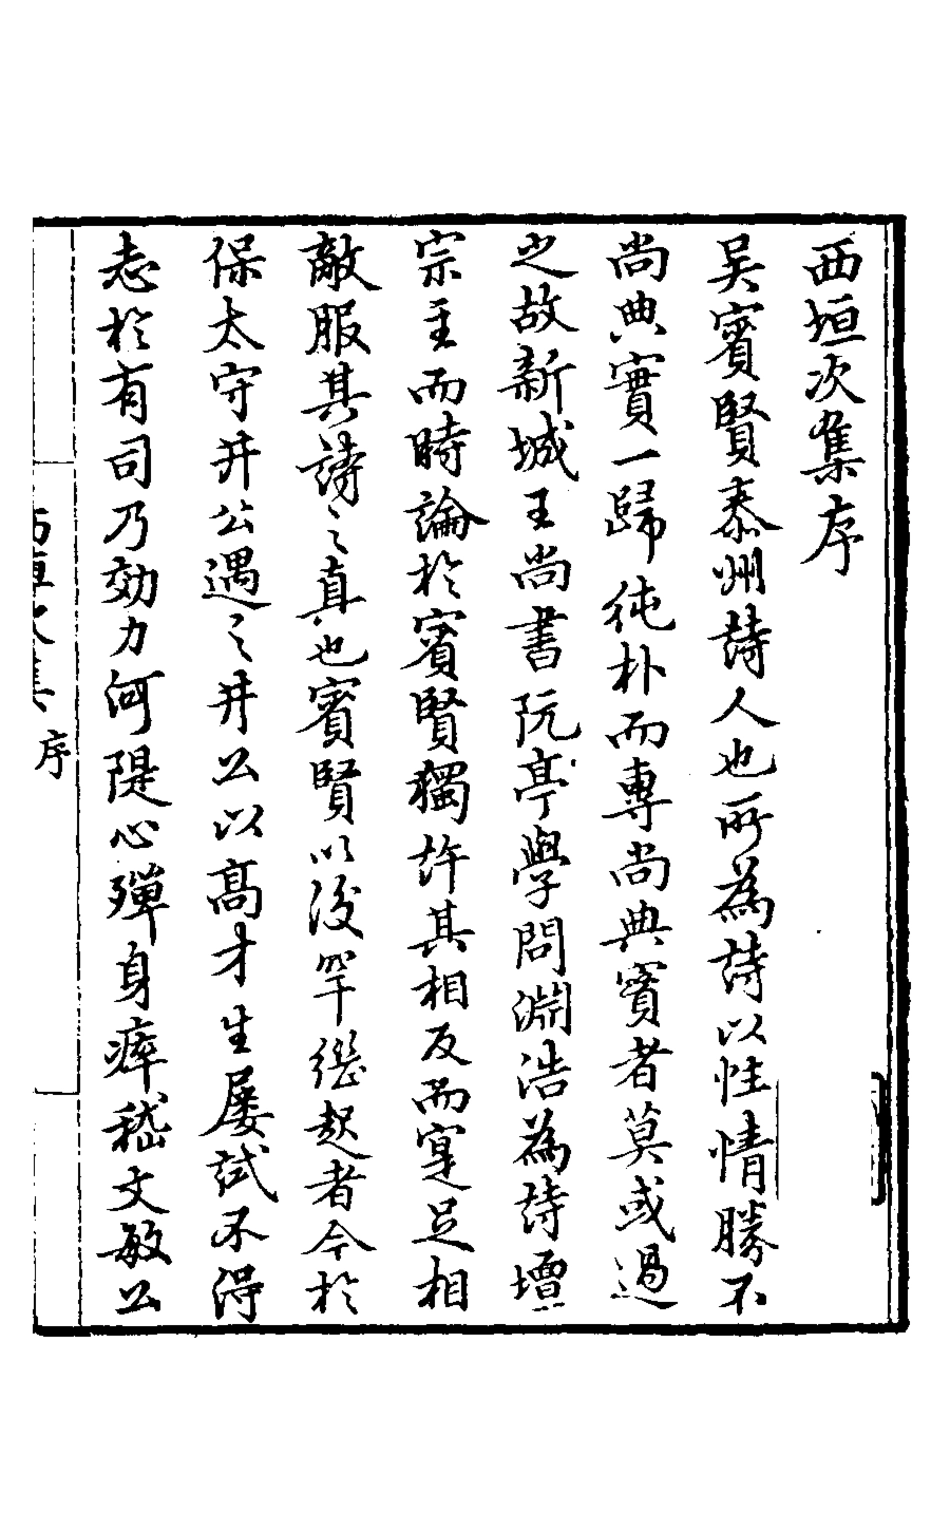 西垣次集序
吴賓賢泰州詩人也所為詩以性情勝不
尚典實一歸純朴而專尚典實者莫或過
之故新城王尚書阮亭學問淵浩為詩壇
宗主而時論於賓賢獨許其相反而寔足相
敵服其詩之真也賓賢以後罕繼起者今於
保太守井公遇之井公以高才生屡試不得
志於有司乃効力河隄心殫身瘁嵇文敏公
序